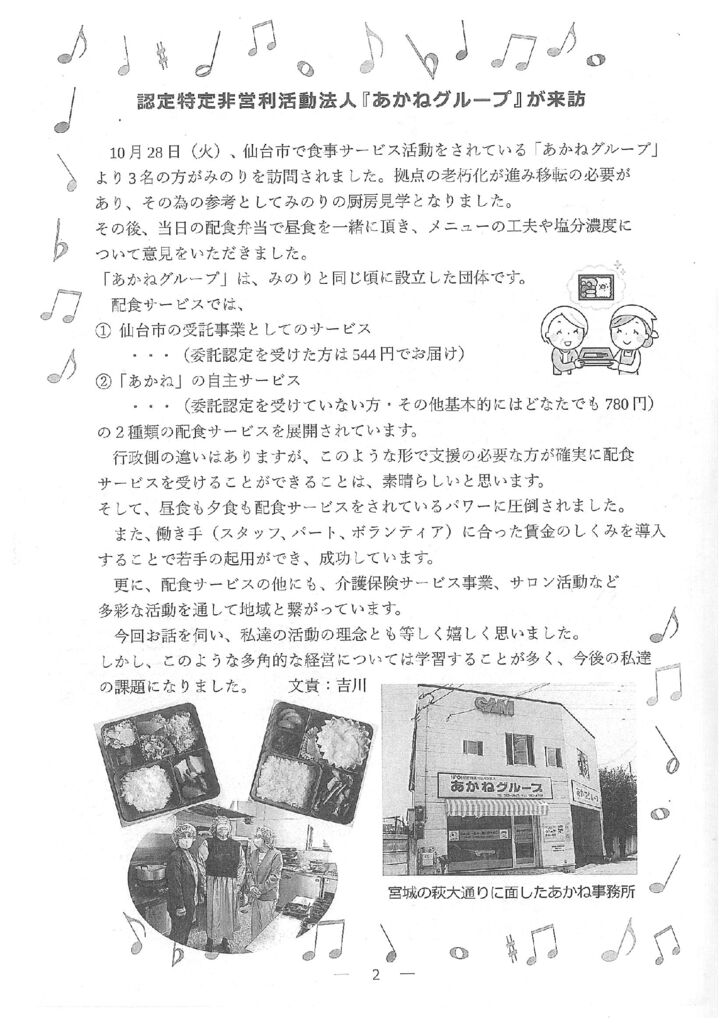 認定特定非営利活動法人『あかねグループ』が来訪
10月28日（火）、仙台市で食事サービス活動をされている「あかねグループ」
より3名の方がみのりを訪問されました。拠点の老朽化が進み移転の必要が
あり、その為の参考としてみのりの厨房見学となりました。
その後、当日の配食弁当で昼食を一緒に頂き、メニューの工夫や塩分濃度に
ついて意見をいただきました。
「あかねグループ」は、みのりと同じ頃に設立した団体です。
配食サービスでは、
① 仙台市の受託事業としてのサービス
・・・（委託認定を受けた方は544円でお届け）
②「あかね」の自主サービス
・・・（委託認定を受けていない方・その他基本的にはどなたでも780円）
の２種類の配食サービスを展開されています。
行政側の違いはありますが、このような形で支援の必要な方が確実に配食
サービスを受けることができることは、素晴らしいと思います。
そして、昼食も夕食も配食サービスをされているパワーに圧倒されました。
また、働き手（スタッフ、パート、ボランティア）に合った賃金のしくみを導入
することで若手の起用ができ、成功しています。
更に、配食サービスの他にも、介護保険サービス事業、サロン活動など
多彩な活動を通して地域と繋がっています。
今回お話を伺い、私達の活動の理念とも等しく嬉しく思いました。
しかし、このような多角的な経営については学習することが多く、今後の私達
の課題になりました。 文責：吉川
あかねグループ
あかねグループ
宮城の萩大通りに面したあかね事務所
― 2 ―